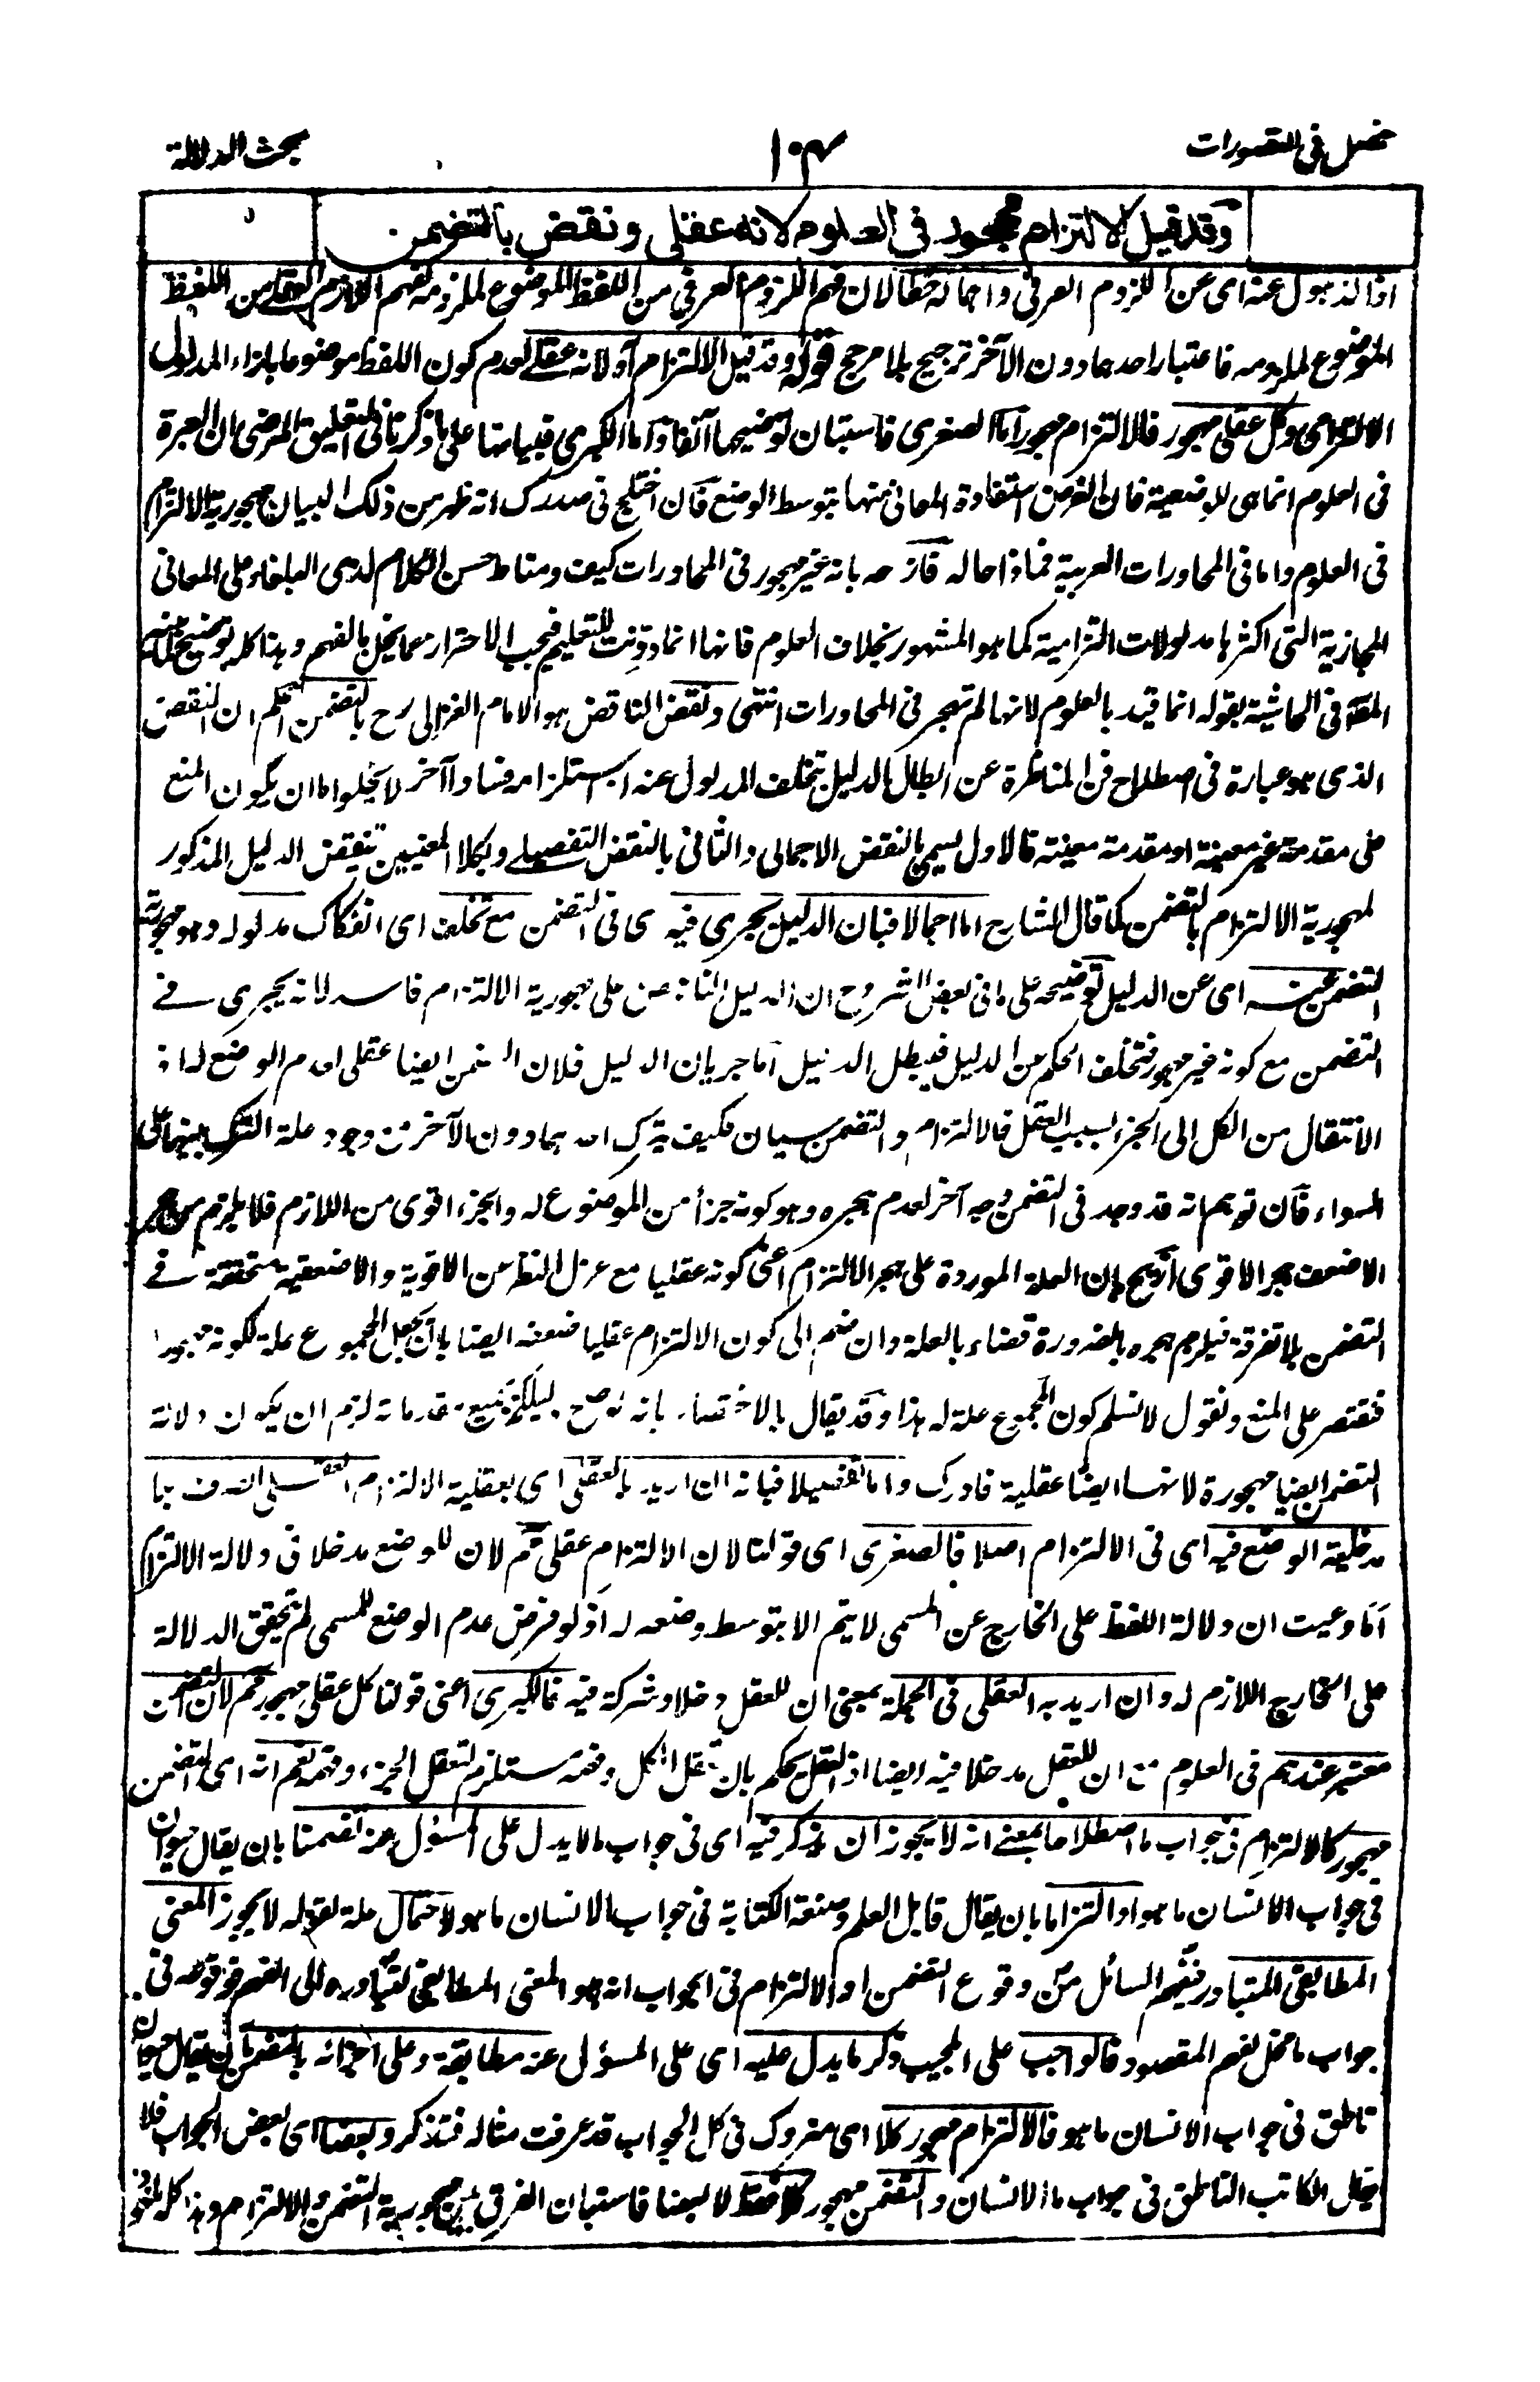 فصل فى التصورات
١٠٣
بحث الدلالة
وقد قيل الالتزام مهجور فى العلوم لانه عقلى ونقض بالتضمن
اذا لذهول عنه اى عن اللزوم العرفى واحماله خطا لان فهم اللزوم العرفى من اللفظ الموضوع لملزومه كفهم اللازم العقلى من اللفظ
الموضوع لملزومه فاعتبار احدهما دون الآخر ترجيح بلا مرجح قوله وقد قيل الالتزام آه لانه عقلى لعدم كون اللفظ موضوعا بازاء المدلول
الالتزامى وكل عقلى مهجور فالالتزام مهجور اما الصغرى فاستبان توضيحها آنفا واما الكبرى فبيانها على ما ذكرنا فى التعليق المرضى ان العبرة
فى العلوم انما هى للوضعية فان الغرض استفادة المعانى منها بتوسط الوضع فان اختلج فى صدرك انه ظهر من ذلك البيان مهجورية الالتزام
فى العلوم واما فى المحاورات العربية فماذا حاله فازحه بانه غير مهجور فى المحاورات كيف ومناط حسن الكلام لدى البلغاء على المعانى
المجازية التى اكثرها مدلولات التزامية كما هو المشهور بخلاف العلوم فانها انما دونت للتعليم فيجب الاحتراز عما يخل بالفهم وهذا كله توضيح لما
فى الحاشية بقوله انما قيد بالعلوم لانها لم تهجر فى المحاورات انتهى ونقض الناقض هو الامام الغزالى رح بالتضمن اعلم ان النقض
الذى هو عبارة فى اصطلاح فن المناظرة عن ابطال الدليل بتخلف المدلول عنه او استلزامه فسادا آخر لا يخلوا اما ان يكون المنع
على مقدمة غير معينة او مقدمة معينة فالاول يسمى بالنقض الاجمالى والثانى بالنقض التفصيلى وبكلا المعنيين ينتقض الدليل المذكور
لمهجورية الالتزام بالتضمن كما قال الشارح اما اجمالا فبان الدليل يجرى فيه اى فى التضمن مع تخلف اى انفكاك مدلوله وهو مهجورية
التضمن عنه اى عن الدليل توضيحه على ما فى بعض الشروح ان الدليل الناهض على مهجورية الالتزام فاسد لانه يجرى فى
التضمن مع كونه غير مهجور فتخلف الحكم عن الدليل فيبطل الدليل اما جريان الدليل فلان التضمن ايضا عقلى لعدم الوضع له اذ
الانتقال من الكل الى الجزء بسبب العقل فالالتزام والتضمن سيان فكيف يترك احدهما دون الآخر مع وجود علة الترك بينهما على
السواء فان توهم انه قد وجد فى التضمن وجه آخر لعدم هجره وهو كونه جزأ من الموضوع له والجزء اقوى من اللازم فلا يلزم من هجر
الاضعف هجر الاقوى ازيح بان العلة الموردة على هجر الالتزام اعنى كونه عقليا مع عزل النظر عن الاقوية والاضعفية متحققة فى
التضمن بلا تفرقة فيلزم هجره بالضرورة قضاء بالعلة وان ضم الى كون الالتزام عقليا ضعفه ايضا بان جعل المجموع علة لكونه مهجورا
فنقتصر على المنع ونقول لا نسلم كون المجموع علة له هذا وقد يقال بالاختصار بانه لو صح دليلكم بجميع مقدماته لزم ان يكون دلالة
التضمن ايضا مهجورة لانها ايضا عقلية فادرك واما تفصيلا فبانه ان اريد بالعقلى اى بعقلية الالتزام العقلى الصرف بلا
مدخلية الوضع فيه اى فى الالتزام اصلا فالصغرى اى قولنا لان الالتزام عقلى مم لان للوضع مدخلا فى دلالة الالتزام
اما وعيت ان دلالة اللفظ على الخارج عن المسمى لا يتم الا بتوسط وضعه له اذ لو فرض عدم الوضع للمسمى لم تحقق الدلالة
على الخارج اللازم له وان اريد به العقلى فى الجملة بمعنى ان للعقل دخلا وشركة فيه فالكبرى اعنى قولنا كل عقلى مهجور مم لان التضمن
معتبر عندهم فى العلوم مع ان للعقل مدخلا فيه ايضا اذ العقل يحكم بان تعقل الكل وفهمه مستلزم لتعقل الجزء وفهمه نعم انه اى التضمن
مهجور كالالتزام فى جواب ما اصطلاحا بمعنى انه لا يجوز ان يذكر فيه اى فى جواب ما لا يدل على المسؤل عنه تضمنا بان يقال حيوان
فى جواب الانسان ما هو او التزاما بان يقال قابل العلم وصنعة الكتابة فى جواب الانسان ما هو لاحتمال علة لقوله لا يجوز المعنى
المطابقى المتبادر فيفهم السائل من وقوع التضمن او الالتزام فى الجواب انه هو المعنى المطابقى لتبادره الى الفهم فوقوعه فى
جواب ما مخل لفهم المقصود فالواجب على المجيب ذكر ما يدل عليه اى على المسؤل عنه مطابقة وعلى اجزائه بالتضمن كان يقال حيوان
ناطق فى جواب الانسان ما هو فالالتزام مهجور كلا اى متروك فى كل الجواب قد عرفت مثاله فتذكر وبعضا اى بعض الجواب فلا
يقال الكاتب الناطق فى جواب ما الانسان والتضمن مهجور كلا فقط لا بعضا فاستبان الفرق بين مهجورية التضمن والالتزام وهذا كله